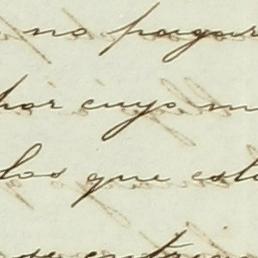 no pagar
por cuyo m
los que est